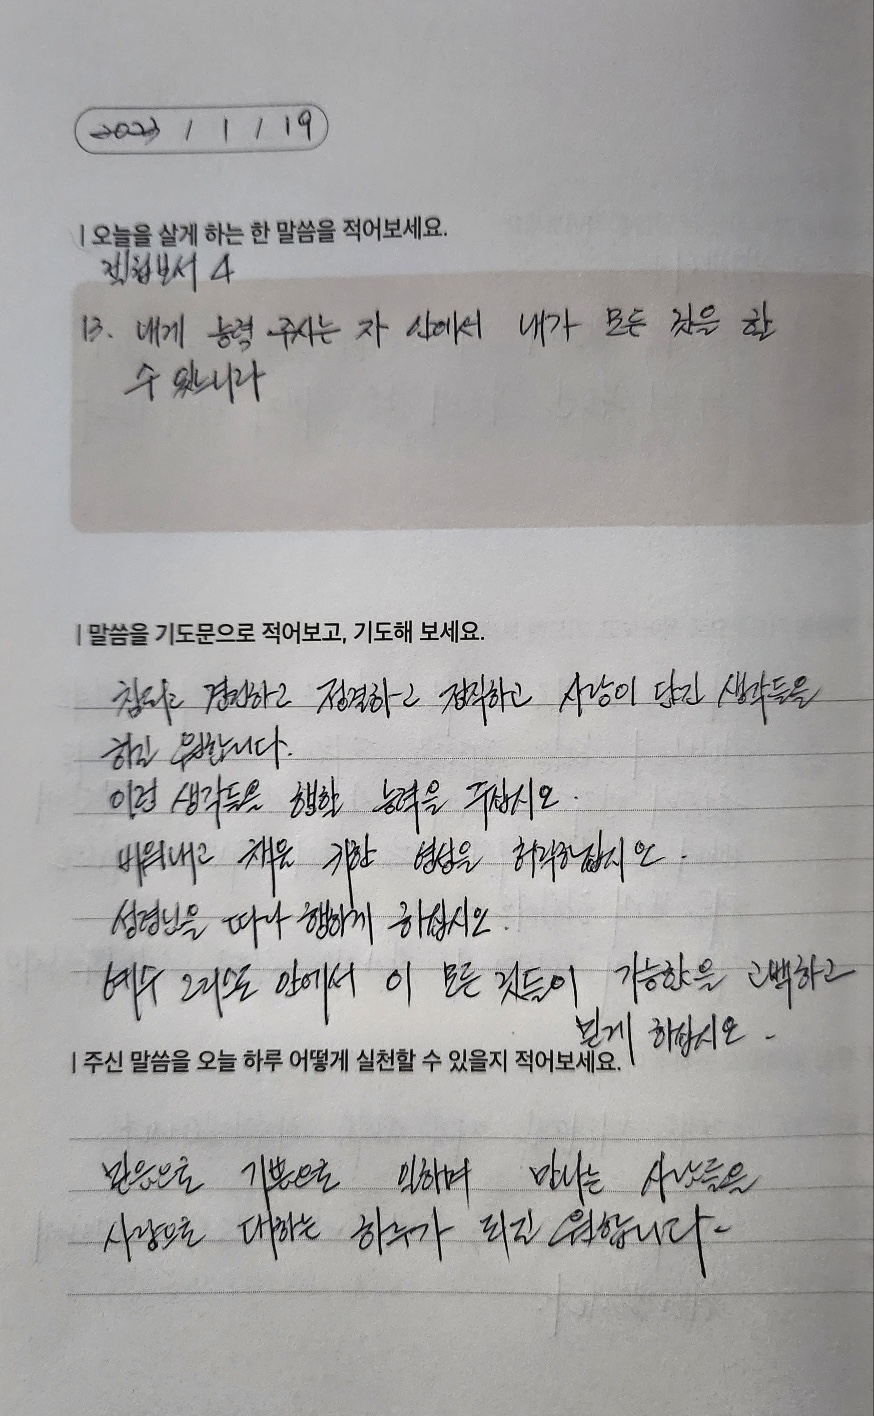 2023 / 1 / 19
오늘을 살게 하는 한 말씀을 적어보세요.
빌립보서 4
13. 내게 능력 주시는 자 안에서 내가 모든 것을 할
수 있느니라
말씀을 기도문으로 적어보고, 기도해 보세요.
참되고 경건하고 정결하고 정직하고 사랑이 담긴 생각들을
하길 원합니다.
이런 생각들을 행할 능력을 주십시오.
비워내고 채움 영성을 허락하십시오.
성령님을 따라 행하게 하십시오.
예수 그리스도 안에서 이 모든 것들이 가능함을 고백하고
믿게 하십시오.
주신 말씀을 오늘 하루 어떻게 실천할 수 있을지 적어보세요.
믿음으로 기쁨으로 일하며 만나는 사람들을
사랑으로 대하는 하루가 되길 원합니다.